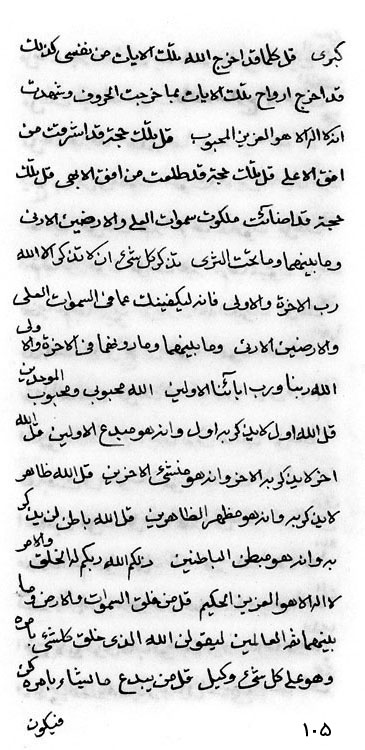 كبرى قل كلما قد اخرج الله تلك الايات من نفسى كذلك
قد اخرج ارواح تلك الايات بما خرجت الحروف وشهدت
انه لا اله الا هو العزيز المحبوب قل تلك حجة قد اشرقت من
افق الاعلى قل تلك حجة قد طلعت من افق الابهى قل تلك
حجة قد اضائت ملكوت سموات العلى والارضين الادنى
وما بينهما وما تحت الثرى تذكر كل شئ ان لا تذكر الا الله
رب الاخرة والاولى فانه ليكفينك عما فى السموات العلى
والارضين الادنى وما بينهما وما دونهما فى الاخرة والاولى
الله ربنا ورب ابائنا الاولين الله محبوبى ومحبوب الموحدين
قل الله اول لا يذكر به اول وانه هو مبدع الاولين قل الله
اخر لا يذكر به الاخر وانه هو منشئ الاخرين قل الله ظاهر
لا يذكر به وانه هو مظهر الظاهرين قل الله باطن لن يذكر
به وانه هو مبطن الباطنين ذلكم الله ربكم له الخلق والامر
لا اله الا هو العزيز الحكيم قل من خلق السموات والارض وما
بينهما العالمين ليقولن الله الذى خلق كلشئ بامره
وهو على كل شئ وكيل قل من يبدع ما يشاء بامره كن
فيكون
١٠٥